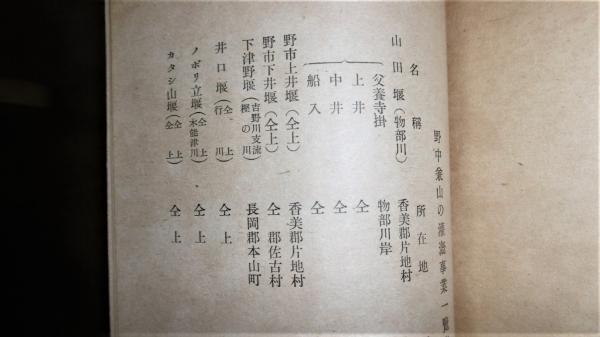 野中兼山の灌漑事業一覧
名稱 所在地
山田堰(物部川) 香美郡片地村
父養寺掛 物部川岸
上井 仝上
中井 仝
船入 仝
野市上井堰(仝上) 香美郡片地村
野市下井堰(仝上) 仝郡佐古村
下津野堰(吉野川支流樫の川) 長岡郡本山町
井口堰(仝上行川) 仝上
ノボリ立堰(仝上木能津川) 仝上
カタシ山堰(仝上仝上) 仝上